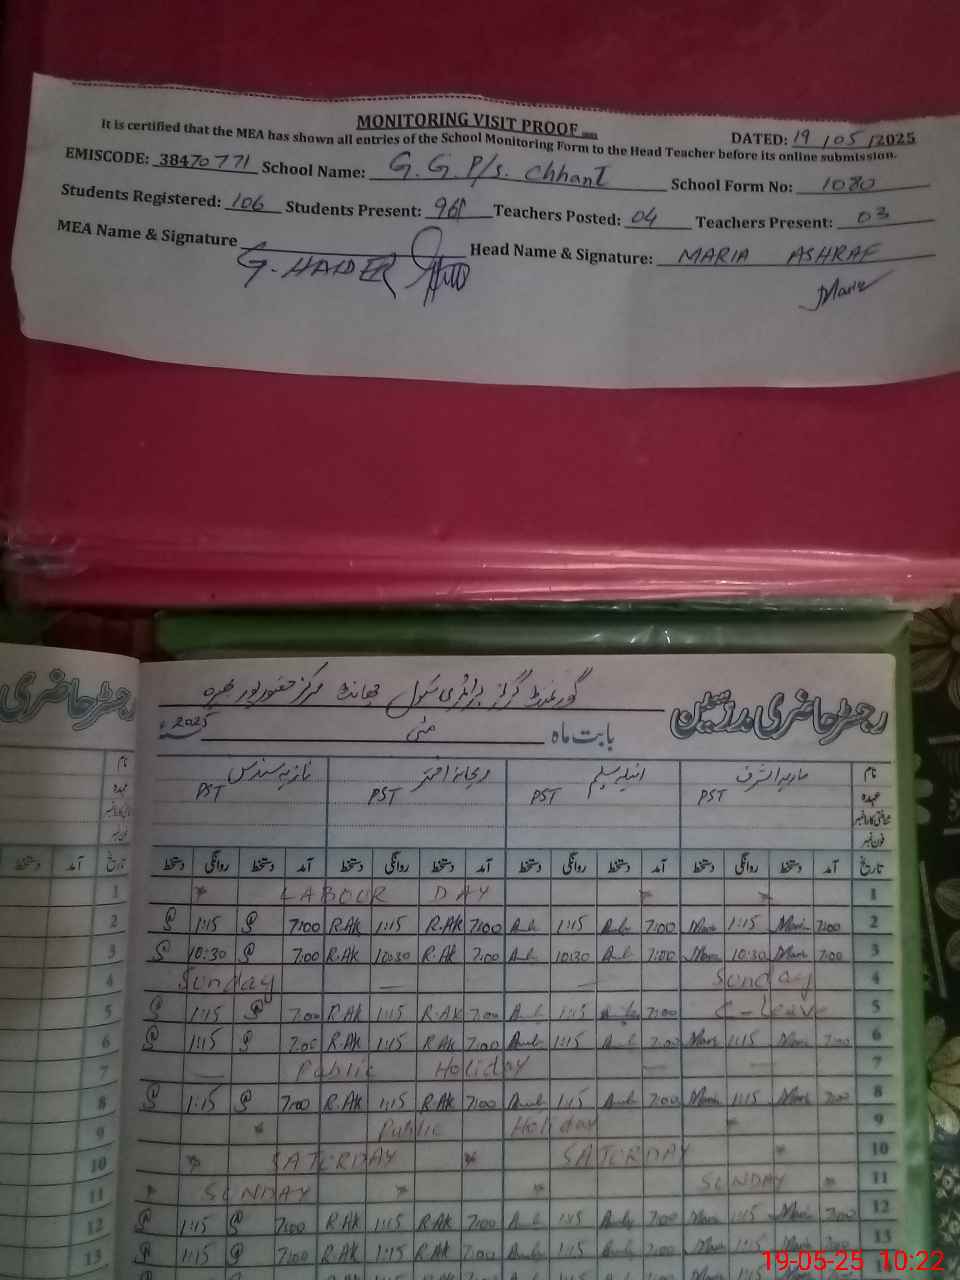 MONITORING VISIT PROOF
DATED: 19/05/2025
It is certified that the MEA has shown all entries of the School Monitoring Form to the Head Teacher before its online submission.
EMISCODE: 38470771 School Name: G.G.P/s. Chhant School Form No: 1080
Students Registered: 106 Students Present: 96 Teachers Posted: 04 Teachers Present: 03
MEA Name & Signature G. HAIDER Head Name & Signature: MARIA ASHRAF
Maria
رجسٹر حاضری مدرسین گورنمنٹ گرلز پرائمری سکول چھانٹ مرکز حضورپور بھیرہ
بابت ماہ مئی 2025ء
نام ماریہ اشرف انیلہ سلیم ریحانہ اختر نازیہ سندس
عہدہ PST PST PST PST
شناختی کارڈ نمبر
فون نمبر
تاریخ آمد دستخط روانگی دستخط آمد دستخط روانگی دستخط آمد دستخط روانگی دستخط آمد دستخط روانگی دستخط
1 LABOUR DAY 1
2 1:15 7:00 R.AK 1:15 R.AK 7:00 1:15 7:00 1:15 7:00 2
3 10:30 7:00 R.AK 10:30 R.AK 7:00 10:30 7:00 10:30 7:00 3
4 Sunday Sunday 4
5 1:15 7:00 R.AK 1:15 R.AK 7:00 1:15 7:00 C-leave 5
6 1:15 7:00 R.AK 1:15 R.AK 7:00 1:15 7:00 1:15 7:00 6
7 Public Holiday 7
8 1:15 7:00 R.AK 1:15 R.AK 7:00 1:15 7:00 1:15 7:00 8
9 Public Holiday 9
10 SATURDAY SATURDAY 10
11 SUNDAY SUNDAY 11
12 1:15 7:00 R.AK 1:15 R.AK 7:00 1:15 7:00 1:15 7:00 12
13 1:15 7:00 R.AK 1:15 R.AK 7:00 1:15 7:00 1:15 7:00 13
19-05-25 10:22